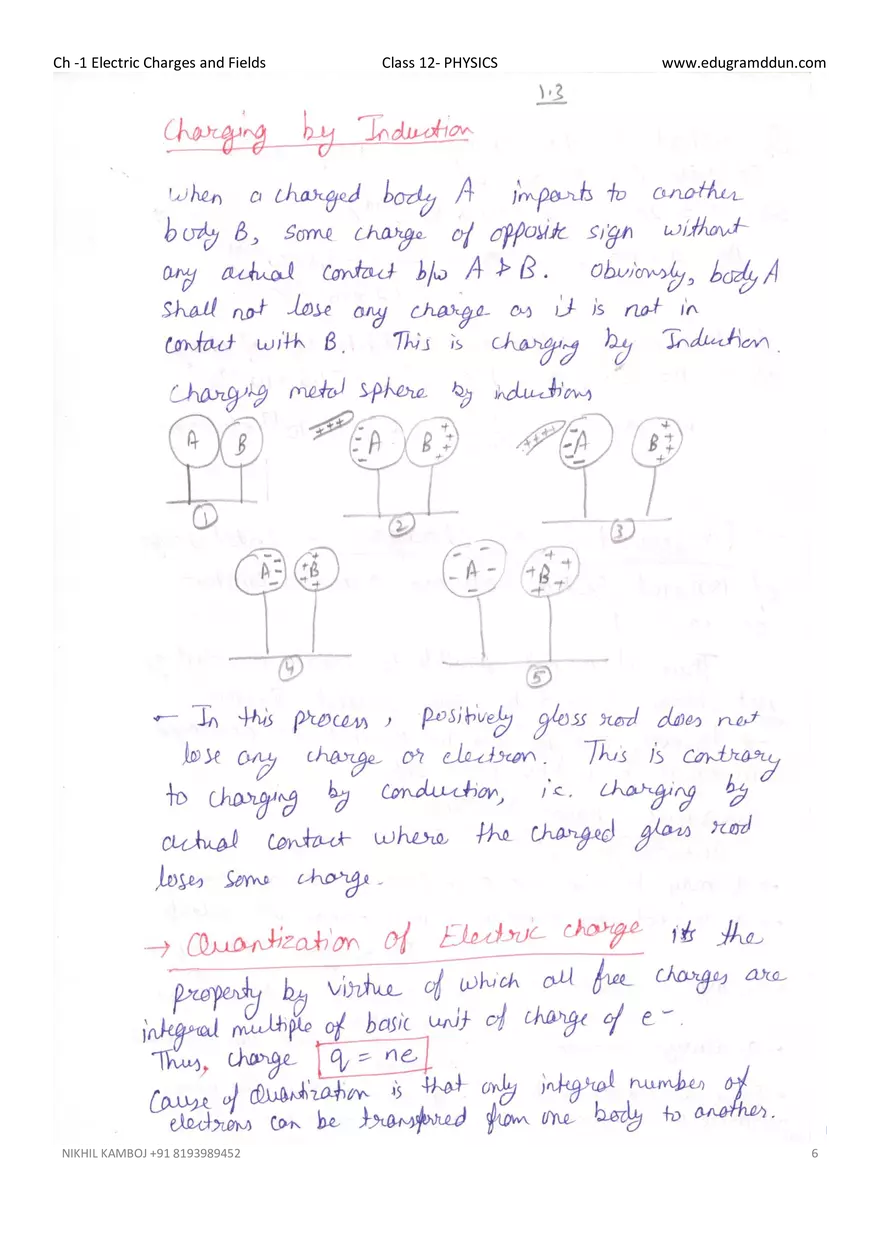 Ch -1 Electric Charges and Fields Class 12- PHYSICS www.edugramddun.com
1.3
Charging by Induction
When a charged body A imparts to another
body B, some charge of opposite sign without
any actual contact b/w A & B. Obviously, body A
shall not lose any charge as it is not in
contact with B. This is charging by Induction.
Charging metal sphere by inductions
A B +++ - - - - A B + + + + + ++++ - - - - A B + + + + +
1 2 3
A - - - - - + + + B + + + - - - A - - + + + B + + +
4 5
- In this process, positively glass rod does not
lose any charge or electron. This is contrary
to charging by conduction, i.e. charging by
actual contact where the charged glass rod
loses some charge.
→ Quantization of Electric charge its the
property by virtue of which all free charges are
integral multiple of basic unit of charge of e-.
Thus, charge q = ne
Cause of Quantization is that only integral number of
electrons can be transferred from one body to another.
NIKHIL KAMBOJ +91 8193989452 6